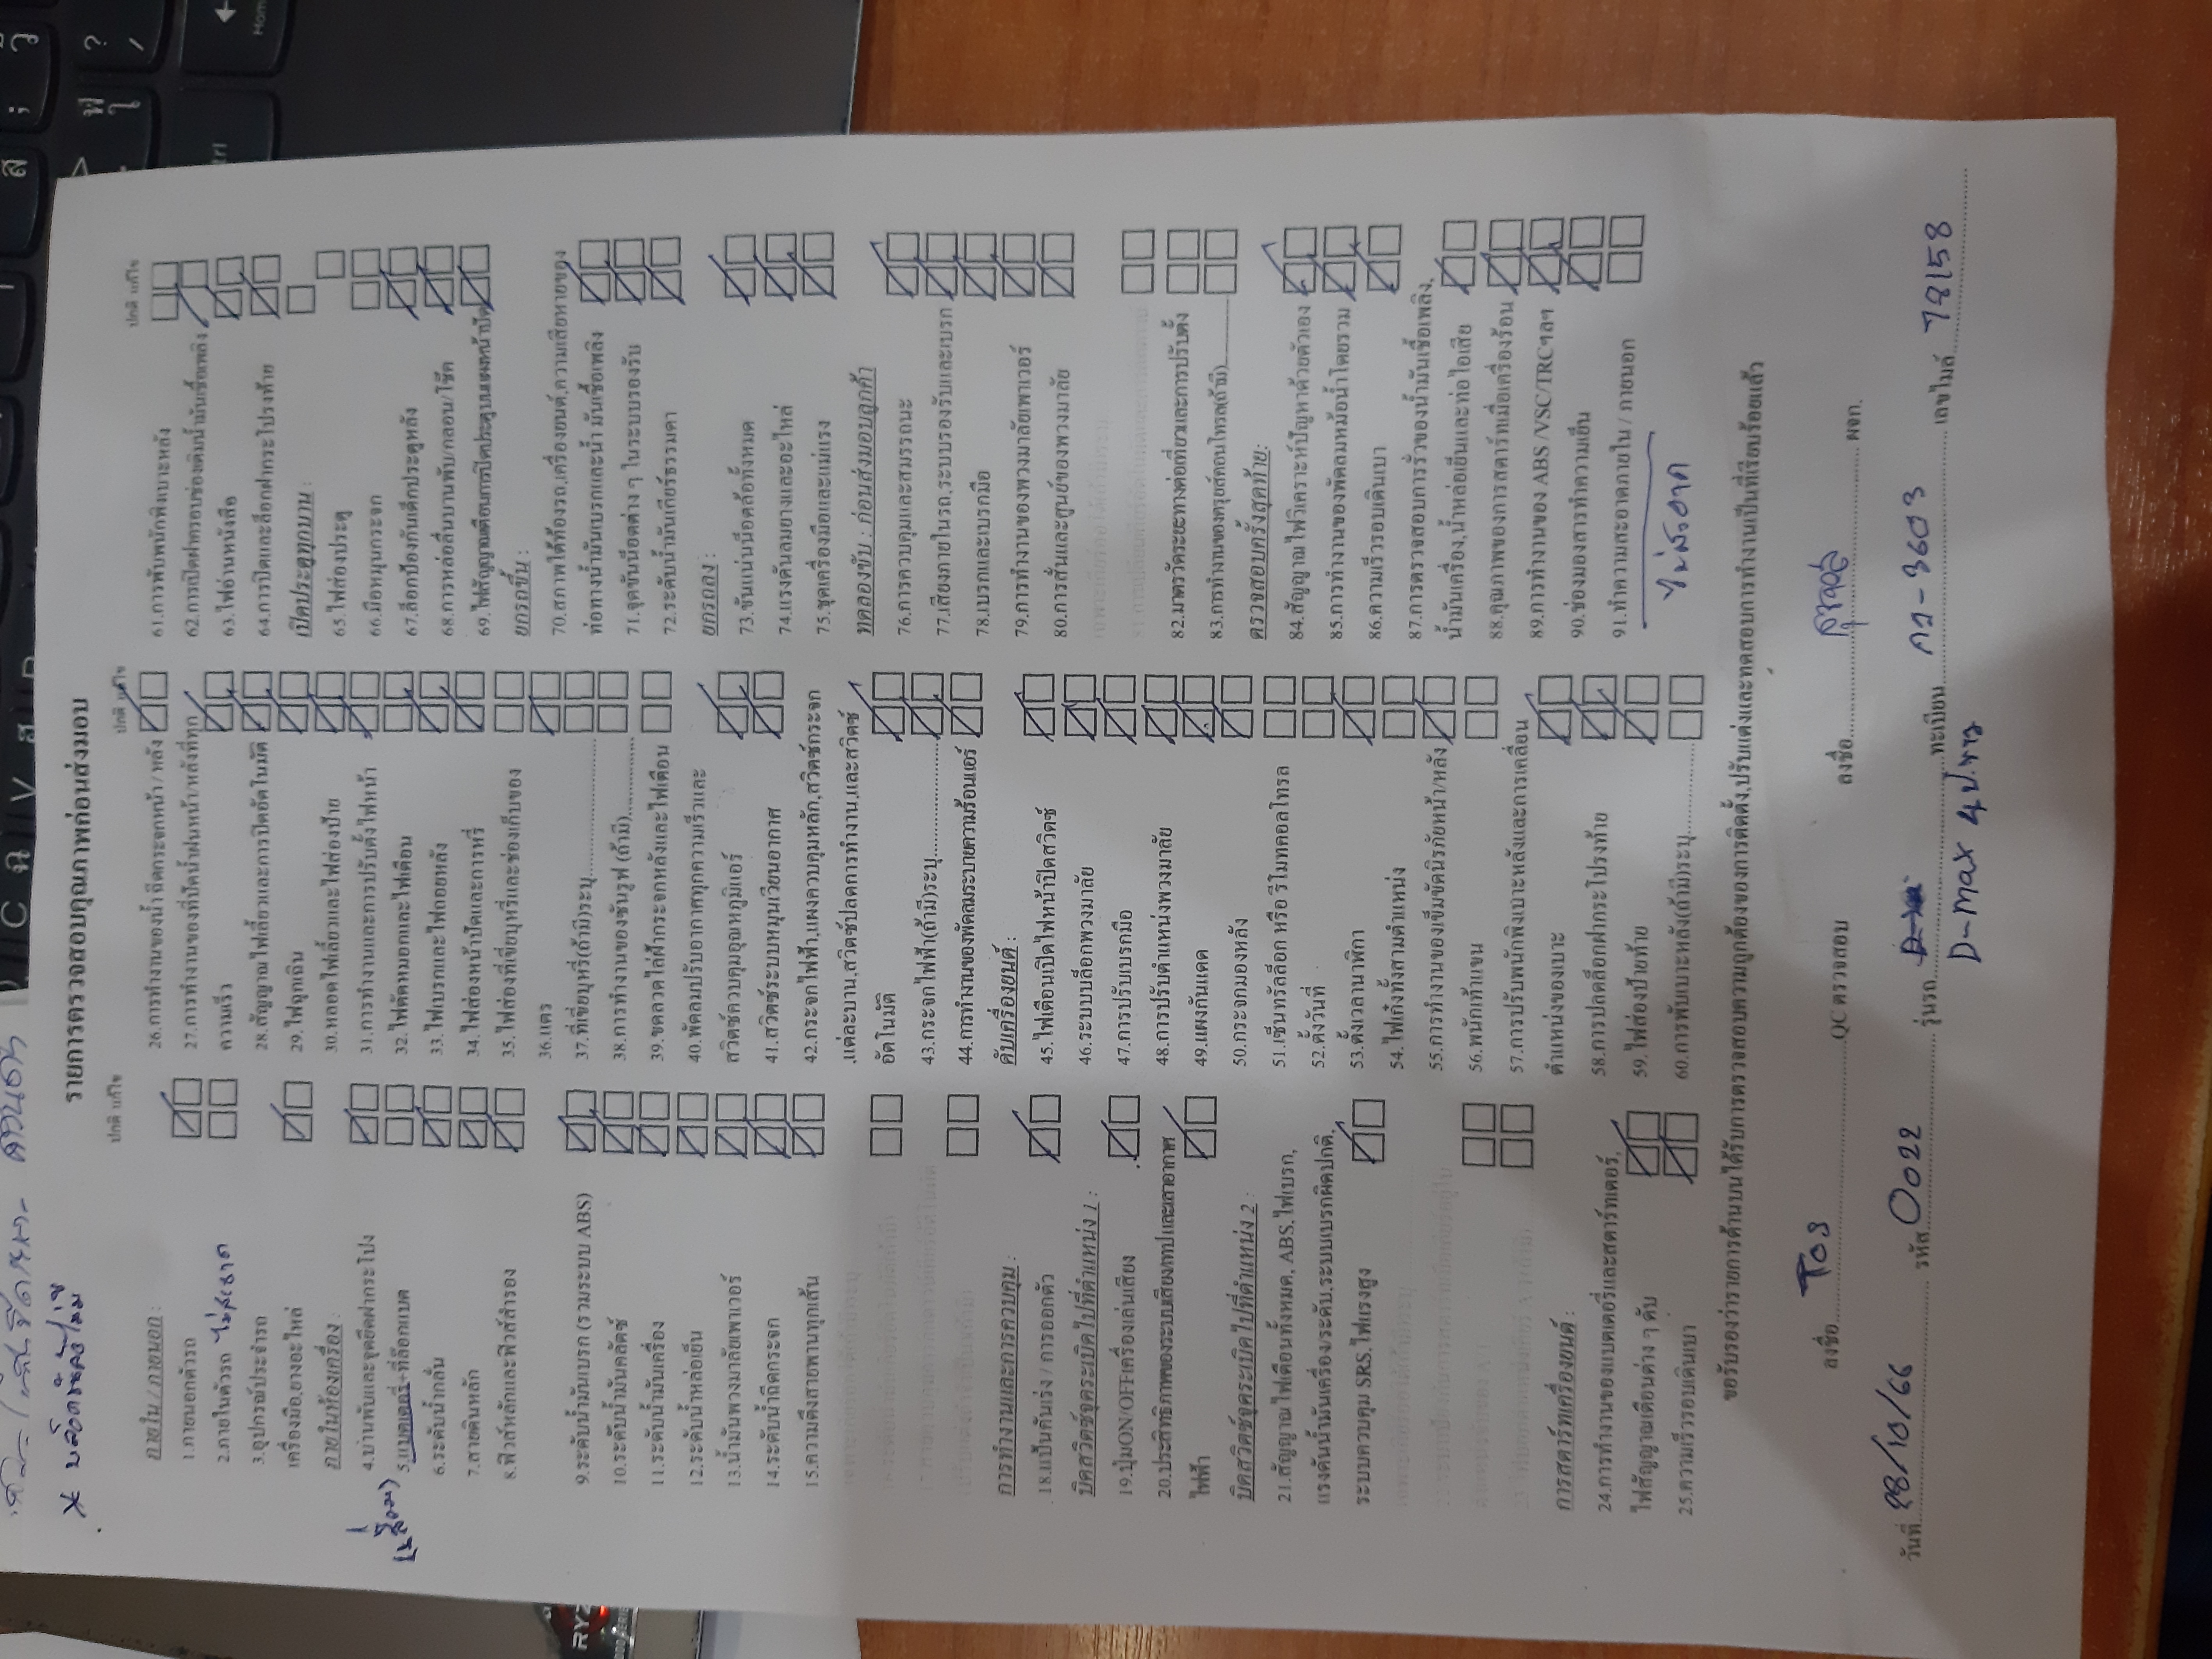 รายการตรวจสอบคุณภาพก่อนส่งมอบ
ปกติ แก้ไข
ภายใน / ภายนอก :
1.ภายนอกตัวรถ
2.ภายในตัวรถ ไม่สะอาด
3.อุปกรณ์ประจำรถ
เครื่องมือ,ยางอะไหล่
ภายในห้องเครื่อง :
4.บานพับและจุดยึดฝากระโปง
5.แบตเตอรี่+ที่ล๊อกแบต
6.ระดับน้ำกลั่น
7.สายดินหลัก
8.ฟิวส์หลักและฟิวส์สำรอง
9.ระดับน้ำมันเบรก (รวมระบบ ABS)
10.ระดับน้ำมันคลัตช์
11.ระดับน้ำมันเครื่อง
12.ระดับน้ำหล่อเย็น
13.น้ำมันพวงมาลัยเพาเวอร์
14.ระดับน้ำฉีดกระจก
15.ความตึงสายพานทุกเส้น
การทำงานและการควบคุม :
18.แป้นคันเร่ง / การออกตัว
บิดสวิตช์จุดระเบิดไปที่ตำแหน่ง 1 :
19.ปุ่มON/OFFเครื่องเล่นเสียง
20.ประสิทธิภาพของระบบเสียง/เทปและเสาอากาศ
ไฟฟ้า
บิดสวิตช์จุดระเบิดไปที่ตำแหน่ง 2 :
21.สัญญาณไฟเตือนทั้งหมด, ABS,ไฟเบรก,
แรงดันน้ำมันเครื่อง/ระดับ,ระบบเบรกผิดปกติ,
ระบบควบคุม SRS,ไฟแรงสูง
การสตาร์ทเครื่องยนต์ :
24.การทำงานของแบตเตอรี่และสตาร์ทเตอร์,
ไฟสัญญาณเตือนต่าง ๆ ดับ
25.ความเร็วรอบเดินเบา
ปกติ แก้ไข
26.การทำงานของน้ำฉีดกระจกหน้า / หลัง
27.การทำงานของที่ปัดน้ำฝนหน้า/หลังที่ทุก
ความเร็ว
28.สัญญาณไฟเลี้ยวและการปิดอัตโนมัติ
29.ไฟฉุกเฉิน
30.หลอดไฟเลี้ยวและไฟส่องป้าย
31.การทำงานและการปรับตั้งไฟหน้า
32.ไฟตัดหมอกและไฟเตือน
33.ไฟเบรกและไฟถอยหลัง
34.ไฟส่องหน้าปัดและการหรี่
35.ไฟส่องที่เขี่ยบุหรี่และช่องเก็บของ
36.แตร
37.ที่เขี่ยบุหรี่(ถ้ามี)ระบุ
38.การทำงานของซันรูฟ (ถ้ามี)
39.ขดลวดไล่ฝ้ากระจกหลังและไฟเตือน
40.พัดลมปรับอากาศทุกความเร็วและ
สวิตช์ควบคุมอุณหภูมิแอร์
41.สวิตช์ระบบหมุนเวียนอากาศ
42.กระจกไฟฟ้า,แผงควบคุมหลัก,สวิตช์กระจก
,แต่ละบาน,สวิตช์ปลดการทำงาน,และสวิตช์
อัตโนมัติ
43.กระจกไฟฟ้า(ถ้ามี)ระบุ
44.การทำงานของพัดลมระบายความร้อนแอร์
ดับเครื่องยนต์ :
45.ไฟเตือนเปิดไฟหน้าปิดสวิตช์
46.ระบบบล็อกพวงมาลัย
47.การปรับเบรกมือ
48.การปรับตำแหน่งพวงมาลัย
49.แผงกันแดด
50.กระจกมองหลัง
51.เซ็นทรัลล็อก หรือ รีโมทคอลโทรล
52.ตั้งวันที่
53.ตั้งเวลานาฬิกา
54.ไฟเก๋งทั้งสามตำแหน่ง
55.การทำงานของเข็มขัดนิรภัยหน้า/หลัง
56.พนักเท้าแขน
57.การปรับพนักพิงเบาะหลังและการเคลื่อน
ตำแหน่งของเบาะ
58.การปลดล็อกฝากระโปรงท้าย
59.ไฟส่องป้ายท้าย
60.การพับเบาะหลัง(ถ้ามี)ระบุ
ปกติ แก้ไข
61.การพับพนักพิงเบาะหลัง
62.การเปิดฝาครอบช่องเติมน้ำมันเชื้อเพลิง
63.ไฟอ่านหนังสือ
64.การปิดและล็อกฝากระโปรงท้าย
เปิดประตูทุกบาน :
65.ไฟส่องประตู
66.มือหมุนกระจก
67.ล็อกป้องกันเด็กประตูหลัง
68.การหล่อลื่นบานพับ/กลอน/โช๊ค
69.ไฟสัญญาณเตือนการปิดประตูบนแผงหน้าปัด
ยกรถขึ้น :
70.สภาพใต้ท้องรถ,เครื่องยนต์,ความเสียหายของ
ท่อทางน้ำมันเบรกและน้ำ มันเชื้อเพลิง
71.จุดขันน็อตต่าง ๆ ในระบบรองรับ
72.ระดับน้ำมันเกียร์ธรรมดา
ยกรถลง :
73.ขันแน่นน็อตล้อทั้งหมด
74.แรงดันลมยางและอะไหล่
75.ชุดเครื่องมือและแม่แรง
ทดลองขับ : ก่อนส่งมอบลูกค้า
76.การควบคุมและสมรรถนะ
77.เสียงภายในรถ,ระบบรองรับและเบรก
78.เบรกและเบรกมือ
79.การทำงานของพวงมาลัยเพาเวอร์
80.การสั่นและศูนย์ของพวงมาลัย
82.มาตรวัดระยะทางต่อเที่ยวและการปรับตั้ง
83.การทำงานของครุยส์คอนโทรล(ถ้ามี)
ตรวจสอบครั้งสุดท้าย:
84.สัญญาณไฟวิเคราะห์ปัญหาด้วยตัวเอง
85.การทำงานของพัดลมหม้อน้ำโดยรวม
86.ความเร็วรอบเดินเบา
87.การตรวจสอบการรั่วของน้ำมันเชื้อเพลิง,
น้ำมันเครื่อง,น้ำหล่อเย็นและท่อไอเสีย
88.คุณภาพของการสตาร์ทเมื่อเครื่องร้อน
89.การทำงานของ ABS /VSC/TRCฯลฯ
90.ช่องมองสารทำความเย็น
91.ทำความสะอาดภายใน / ภายนอก
ไม่สะอาด
ขอรับรองว่ารายการด้านบนได้รับการตรวจสอบความถูกต้องของการติดตั้ง,ปรับแต่งและทดสอบการทำงานเป็นที่เรียบร้อยแล้ว
ลงชื่อ QC ตรวจสอบ ลงชื่อ ผจก.
วันที่ 28/10/66 รหัส 0022 รุ่นรถ ทะเบียน -3603 เลขไมล์ 78158
D-max 4ป.